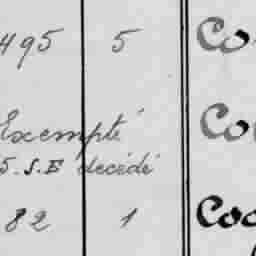 495 5 Co
Exempté Co
S.S.E décédé
82 1 Coo